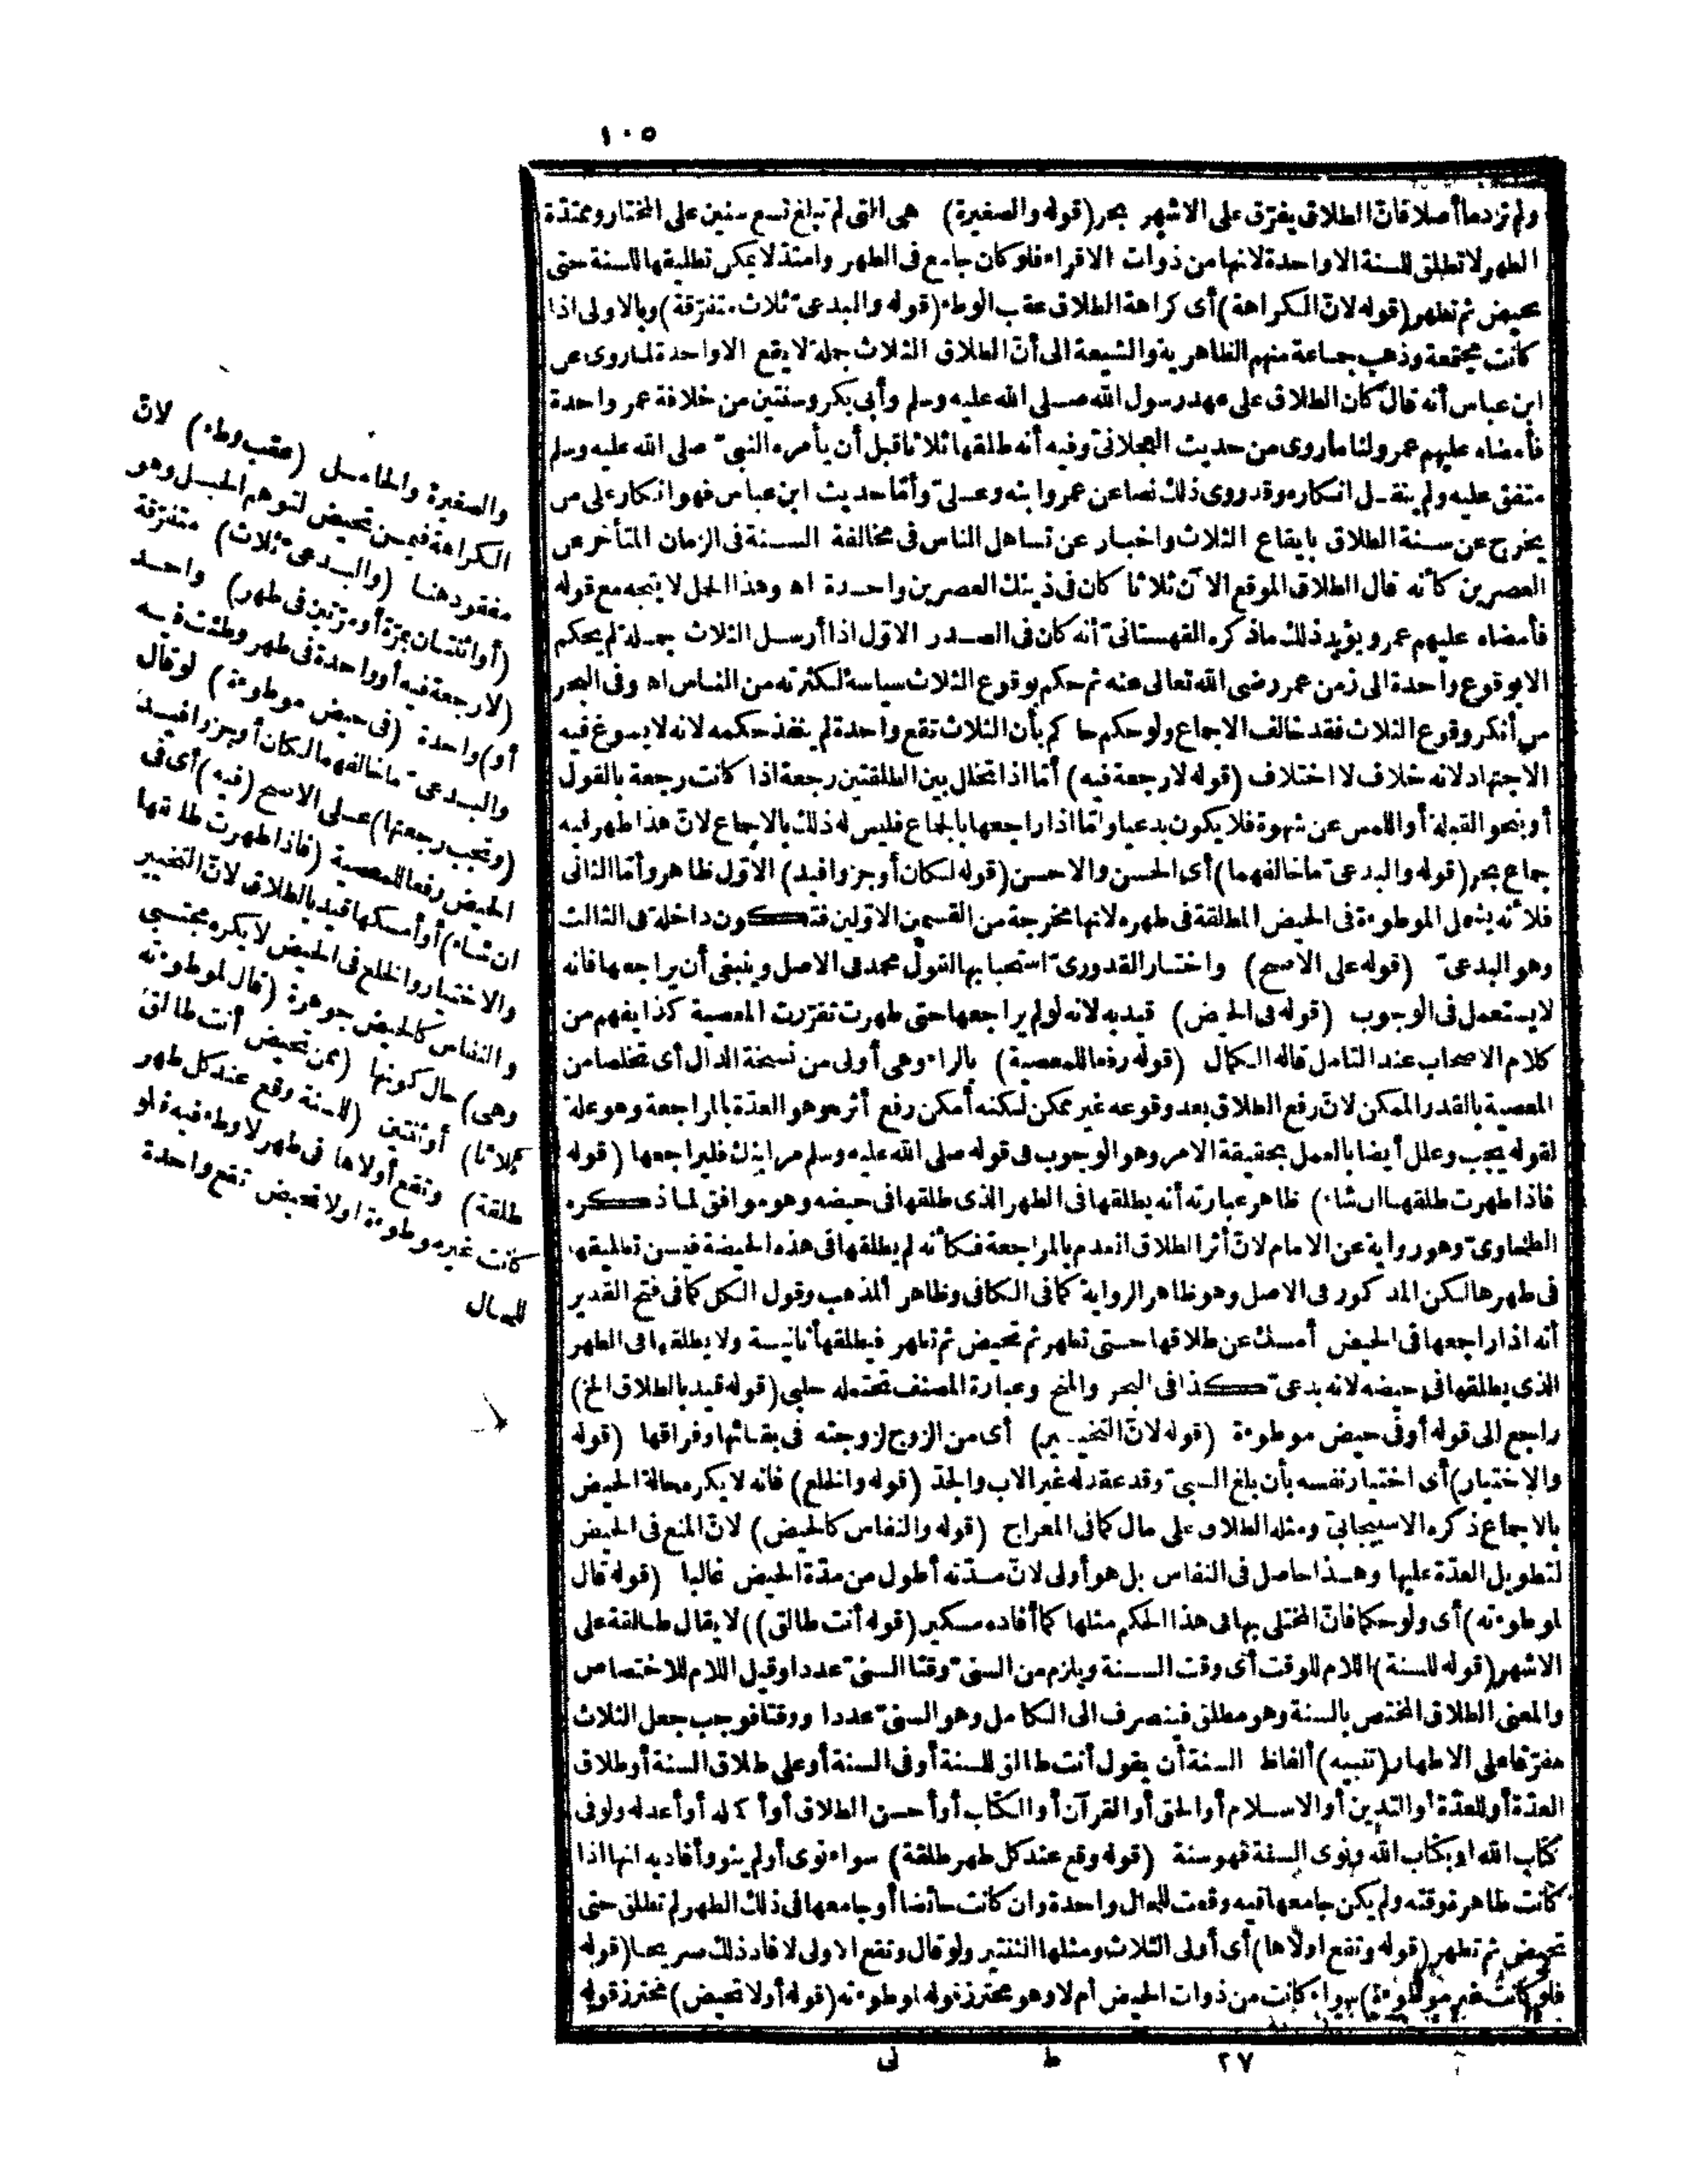 ١٠٥
ولم تر دما أصلا فان الطلاق يفرّق على الاشهر بحر (قوله والصغيرة) هى التى لم تبلغ تسع سنين على المختار وممتدّة
الطهر لا تطلق للسنة الا واحدة لانها من ذوات الاقراء فلو كان جامع فى الطهر وامتدّ لا يمكن تطليقها للسنة حتى
تحيض ثم تطهر (قوله لانّ الكراهة) أى كراهة الطلاق عقب الوطء (قوله والبدعىّ ثلاث متفرّقة) وبالاولى اذا
كانت مجتمعة وذهب جماعة منهم الظاهرية والشيعة الى أنّ الطلاق الثلاث جملة لا يقع الا واحدة لما روى عن
ابن عباس أنه قال كان الطلاق على عهد رسول الله صلى الله عليه وسلم وأبى بكر وسنتين من خلافة عمر واحدة
فأمضاه عليهم عمر ولنا ما روى من حديث العجلانىّ وفيه أنه طلقها ثلاثا قبل أن يأمره النبىّ صلى الله عليه وسلم
متفق عليه ولم ينقل انكاره وقد روى ذلك نصا عن عمر وابنه وعلىّ وأمّا حديث ابن عباس فهو انكار على من
يخرج عن سنة الطلاق بايقاع الثلاث واخبار عن تساهل الناس فى مخالفة السنة فى الزمان المتأخر عن
العصرين كأنه قال الطلاق الموقع الآن ثلاثا كان فى ذينك العصرين واحدة اه وهذا الحل لا يتجه مع قوله
فأمضاه عليهم عمر ويؤيد ذلك ما ذكره القهستانىّ أنه كان فى الصدر الاوّل اذا أرسل الثلاث جملة لم يحكم
الا بوقوع واحدة الى زمن عمر رضى الله تعالى عنه ثم حكم بوقوع الثلاث سياسة لكثرته من الناس اه وفى البحر
من أنكر وقوع الثلاث فقد خالف الاجماع ولو حكم حاكم بأن الثلاث تقع واحدة لم ينفذ حكمه لانه لا يسوغ فيه
الاجتهاد لانه خلاف لا اختلاف (قوله لا رجعة فيه) أمّا اذا تخلل بين الطلقتين رجعة اذا كانت رجعة بالقول
أو بنحو القبلة أو اللمس عن شهوة فلا يكون بدعيا وأمّا اذا راجعها بالجماع فليس له ذلك بالاجماع لانّ هذا طهر فيه
جماع بحر (قوله والبدعىّ ما خالفهما) أى الحسن والاحسن (قوله لكان أوجز وافيد) الاوّل ظاهر وأمّا الثانى
فلأنه يشمل الموطوءة فى الحيض المطلقة فى طهره لانها مخرجة من القسمين الاوّلين فتكون داخلة فى الثالث
وهو البدعىّ (قوله على الاصح) واختار القدورىّ استحبابها لقول محمد فى الاصل وينبغى أن يراجعها فانه
لا يستعمل فى الوجوب (قوله فى الحيض) قيد به لانه لو لم يراجعها حتى طهرت تقرّرت المعصية كذا يفهم من
كلام الاصحاب عند التأمل قاله الكمال (قوله رفعا للمعصية) بالراء وهى أولى من نسخة الدال أى تخلصا من
المعصية بالقدر الممكن لانّ رفع الطلاق بعد وقوعه غير ممكن لكنه أمكن رفع أثره وهو العدّة بالمراجعة وهو علة
لقوله يجب وعلل أيضا بالعمل بحقيقة الامر وهو الوجوب فى قوله صلى الله عليه وسلم مر ابنك فليراجعها (قوله
فاذا طهرت طلقها ان شاء) ظاهر عبارته أنه يطلقها فى الطهر الذى طلقها فى حيضه وهو موافق لما ذكره
الطحاوىّ وهو رواية عن الامام لانّ أثر الطلاق انعدم بالمراجعة فكأنه لم يطلقها فى هذه الحيضة فيسنّ تطليقها
فى طهرها لكن المذكور فى الاصل وهو ظاهر الرواية كما فى الكافى وظاهر المذهب وقول الكل كما فى فتح القدير
أنه اذا راجعها فى الحيض أمسك عن طلاقها حتى تطهر ثم تحيض ثم تطهر فيطلقها ثانية ولا يطلقها فى الطهر
الذى يطلقها فى حيضه لانه بدعىّ كذا فى البحر والمنح وعبارة المصنف تحتمله حلبى (قوله قيد بالطلاق الخ)
راجع الى قوله أو فى حيض موطوءة (قوله لانّ التخيير) أى من الزوج لزوجته فى بقائها وفراقها (قوله
والاختيار) أى اختيار نفسه بأن بلغ الصبىّ وقد عقد له غير الاب والجدّ (قوله والخلع) فانه لا يكره حالة الحيض
بالاجماع ذكره الاسبيجابىّ ومثله الطلاق على مال كما فى المعراج (قوله والنفاس كالحيض) لانّ المنع فى الحيض
لتطويل العدّة عليها وهذا حاصل فى النفاس بل هو أولى لانّ مدّته أطول من مدّة الحيض غالبا (قوله قال
لموطوءته) أى ولو حكما فانّ المختلى بها فى هذا الحكم مثلها كما أفاده مسكين (قوله أنت طالق)) لا يقال طالقة على
الاشهر (قوله للسنة) اللام للوقت أى وقت السنة ويلزم من السنىّ وقتا السنىّ عددا وقيل اللام للاختصاص
والمعنى الطلاق المختص بالسنة وهو مطلق فينصرف الى الكامل وهو السنىّ عددا ووقتا فوجب جعل الثلاث
مفرّقا على الاطهار (تنبيه) ألفاظ السنة أن يقول أنت طالق للسنة أو فى السنة أو على طلاق السنة أو طلاق
العدّة أو للعدّة أو الدين أو الاسلام أو الحق أو القرآن أو الكتاب أو أحسن الطلاق أو أكمله أو أعدله ولو فى
كتاب الله او بكتاب الله ونوى السنة فهو سنة (قوله وقع عند كل طهر طلقة) سواء نوى أو لم ينو وأفاد به انها اذا
كانت طاهرة وقته ولم يكن جامعها فيه وقعت للحال واحدة وان كانت حائضا أو جامعها فى ذلك الطهر لم تطلق حتى
تحيض ثم تطهر (قوله وتقع اولاها) أى أولى الثلاث ومثلها الثنتين ولو قال وتقع الاولى لافاد ذلك صريحا (قوله
فلو كانت غير موطوءة) سواء كانت من ذوات الحيض أم لا وهو محترز قوله لموطوءته (قوله أو لا تحيض) محترز قوله
٢٧ ط نى
والصغيرة والحامل (عقب وطء) لانّ
الكراهة فيمن تحيض لتوهم الحبل وهو
مفقود هنا (والبدعىّ ثلاث) متفرّقة
(أو اثنتان بمرّة أو مرّتين فى طهر) واحد
(لا رجعة فيه أو واحدة فى طهر وطئت فيه
أو) واحدة (فى حيض موطوءة) لو قال
والبدعىّ ما خالفهما لكان أوجز وافيد
(وتجب رجعتها) على الاصح (فيه) أى فى
الحيض رفعا للمعصية (فاذا طهرت طلقها
ان شاء) أو أمسكها قيد بالطلاق لانّ التخيير
والاختيار والخلع فى الحيض لا يكره مجتبى
والنفاس كالحيض جوهرة (قال لموطوءته
وهى) حال كونها (ممن تحيض أنت طالق
ثلاثا) أو ثنتين (للسنة وقع عند كل طهر
طلقة) وتقع أولاها فى طهر لا وطء فيه فلو
كانت غير موطوءة او لا تحيض تقع واحدة
للحال